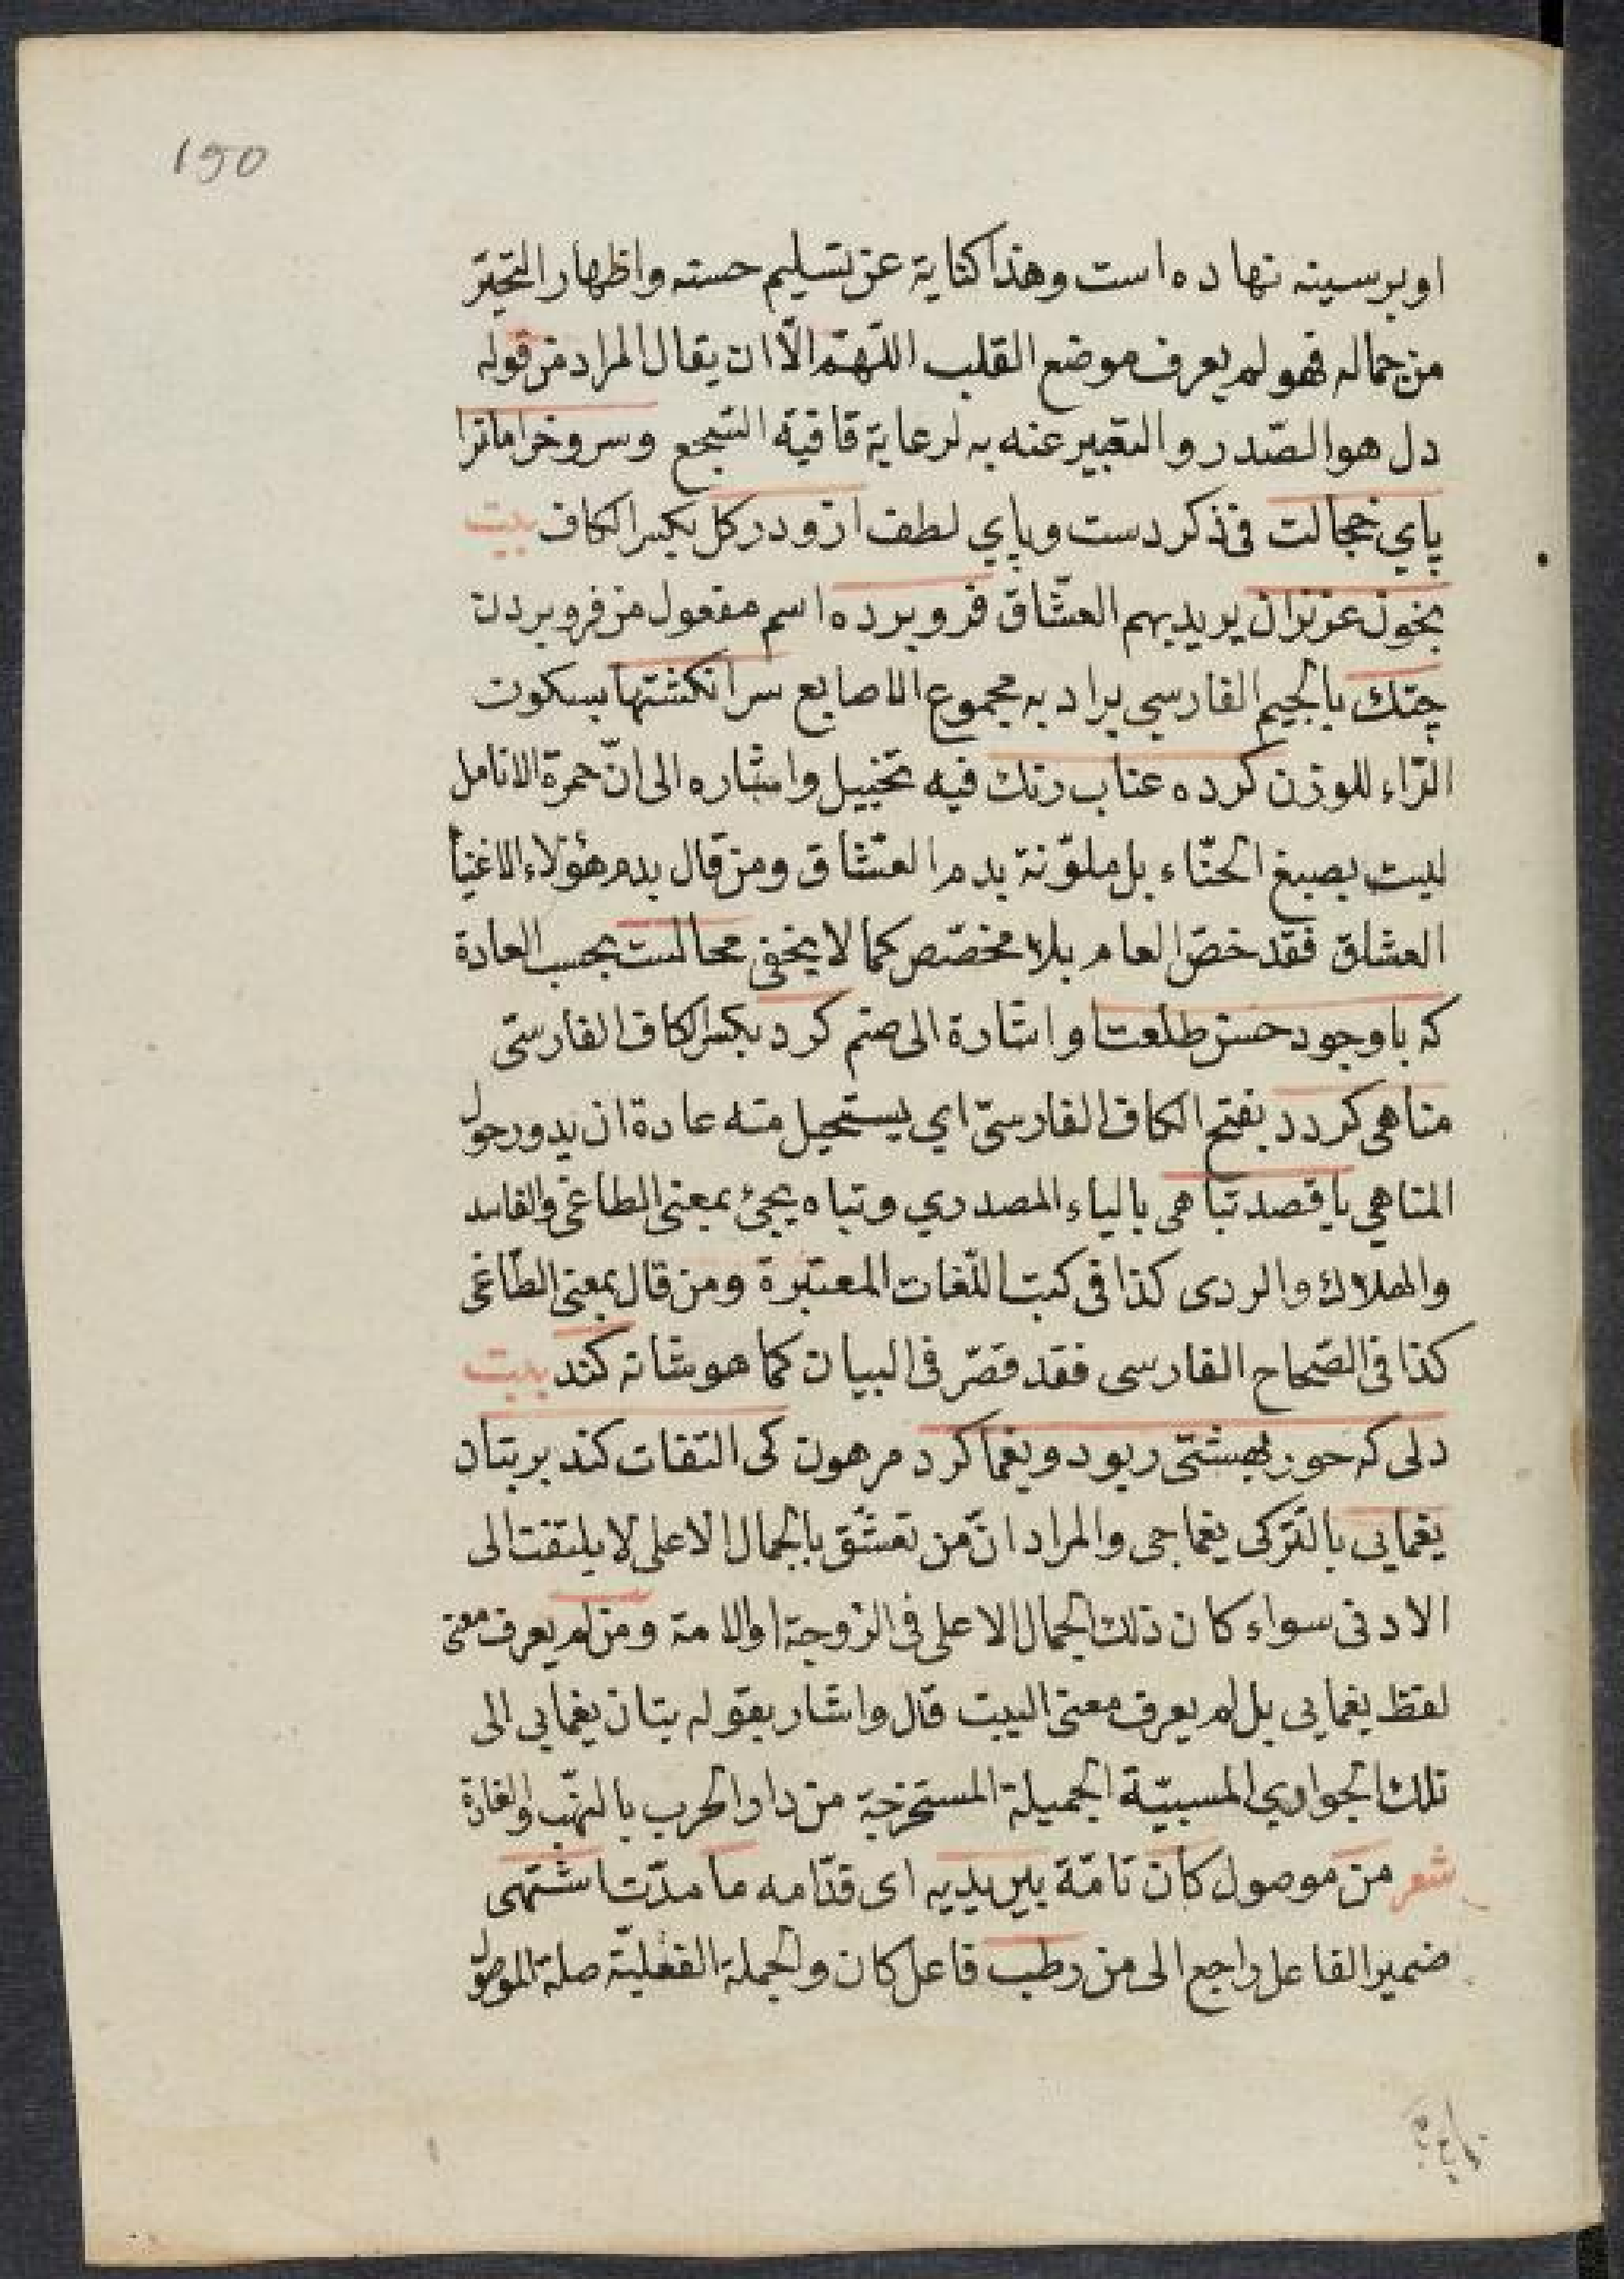 190
او بر سينه نهاده است وهذا كناية عن تسليم حسنه واظهار التحيّر
من جماله فهو لم يعرف موضع القلب اللّهمّ الّا ان يقال المراد من قوله
دل هو الصّدر والتعبير عنه به لرعاية قافية السّجع وسرو خرامانرا
پاي خجالت فى ذكر دست وپاي لطف ازو در كل بكسر الكاف بيت
بخون عزيزان يريد بهم العشّاق فرو برده اسم مفعول من فرو بردن
چنك بالجيم الفارسي يراد به مجموع الاصابع سر انكشتها بسكوت
الرّاء للوزن كرده عناب رنك فيه تخييل واشاره الى انّ حمرة الانامل
ليست بصبغ الحنّاء بل ملوّنة بدم العشّاق ومن قال بدم هؤلاء الاغنيا
العشاق فقد خصّ العام بلا مخصّص كما لا يخفى محالست بحسب العادة
كه با وجود حسن طلعت او اشارة الى صنم كرد بكسر الكاف الفارسىّ
مناهى كردد بفتح الكاف الفارسىّ اي يستحيل منه عادة ان يدور حول
المناهي يا قصد تباهى بالياء المصدري وتباه يجئ بمعنى الطاغى والفاسد
والهلاك والردى كذا فى كتب اللّغات المعتبرة ومن قال بمعنى الطّاغى
كذا فى الصّحاح الفارسى فقد قصّر فى البيان كما هو شانه كند بيت
دلى كه حور بهشتى ربود ويغما كرد مرهون كى التفات كند بر بتان
يغمايى بالتّركى يغماجى والمراد انّ من تعشّق بالجمال الاعلى لا يلتفت الى
الادنى سواء كان ذلك الجمال الاعلى فى الزوجة او الامة ومن لم يعرف معنى
لفظ يغمايى بل لم يعرف معنى البيت قال واشار بقوله بتان يغمايى الى
تلك الجواري المسبيّة الجميلة المستخرجة من دار الحرب بالنهب والغارة
شعر من موصول كان تامّة بين يديه اى قدّامه ما مدّت اشتهى
ضمير الفاعل راجع الى من رطب فاعل كان والجملة الفعليّة صلة الموصول